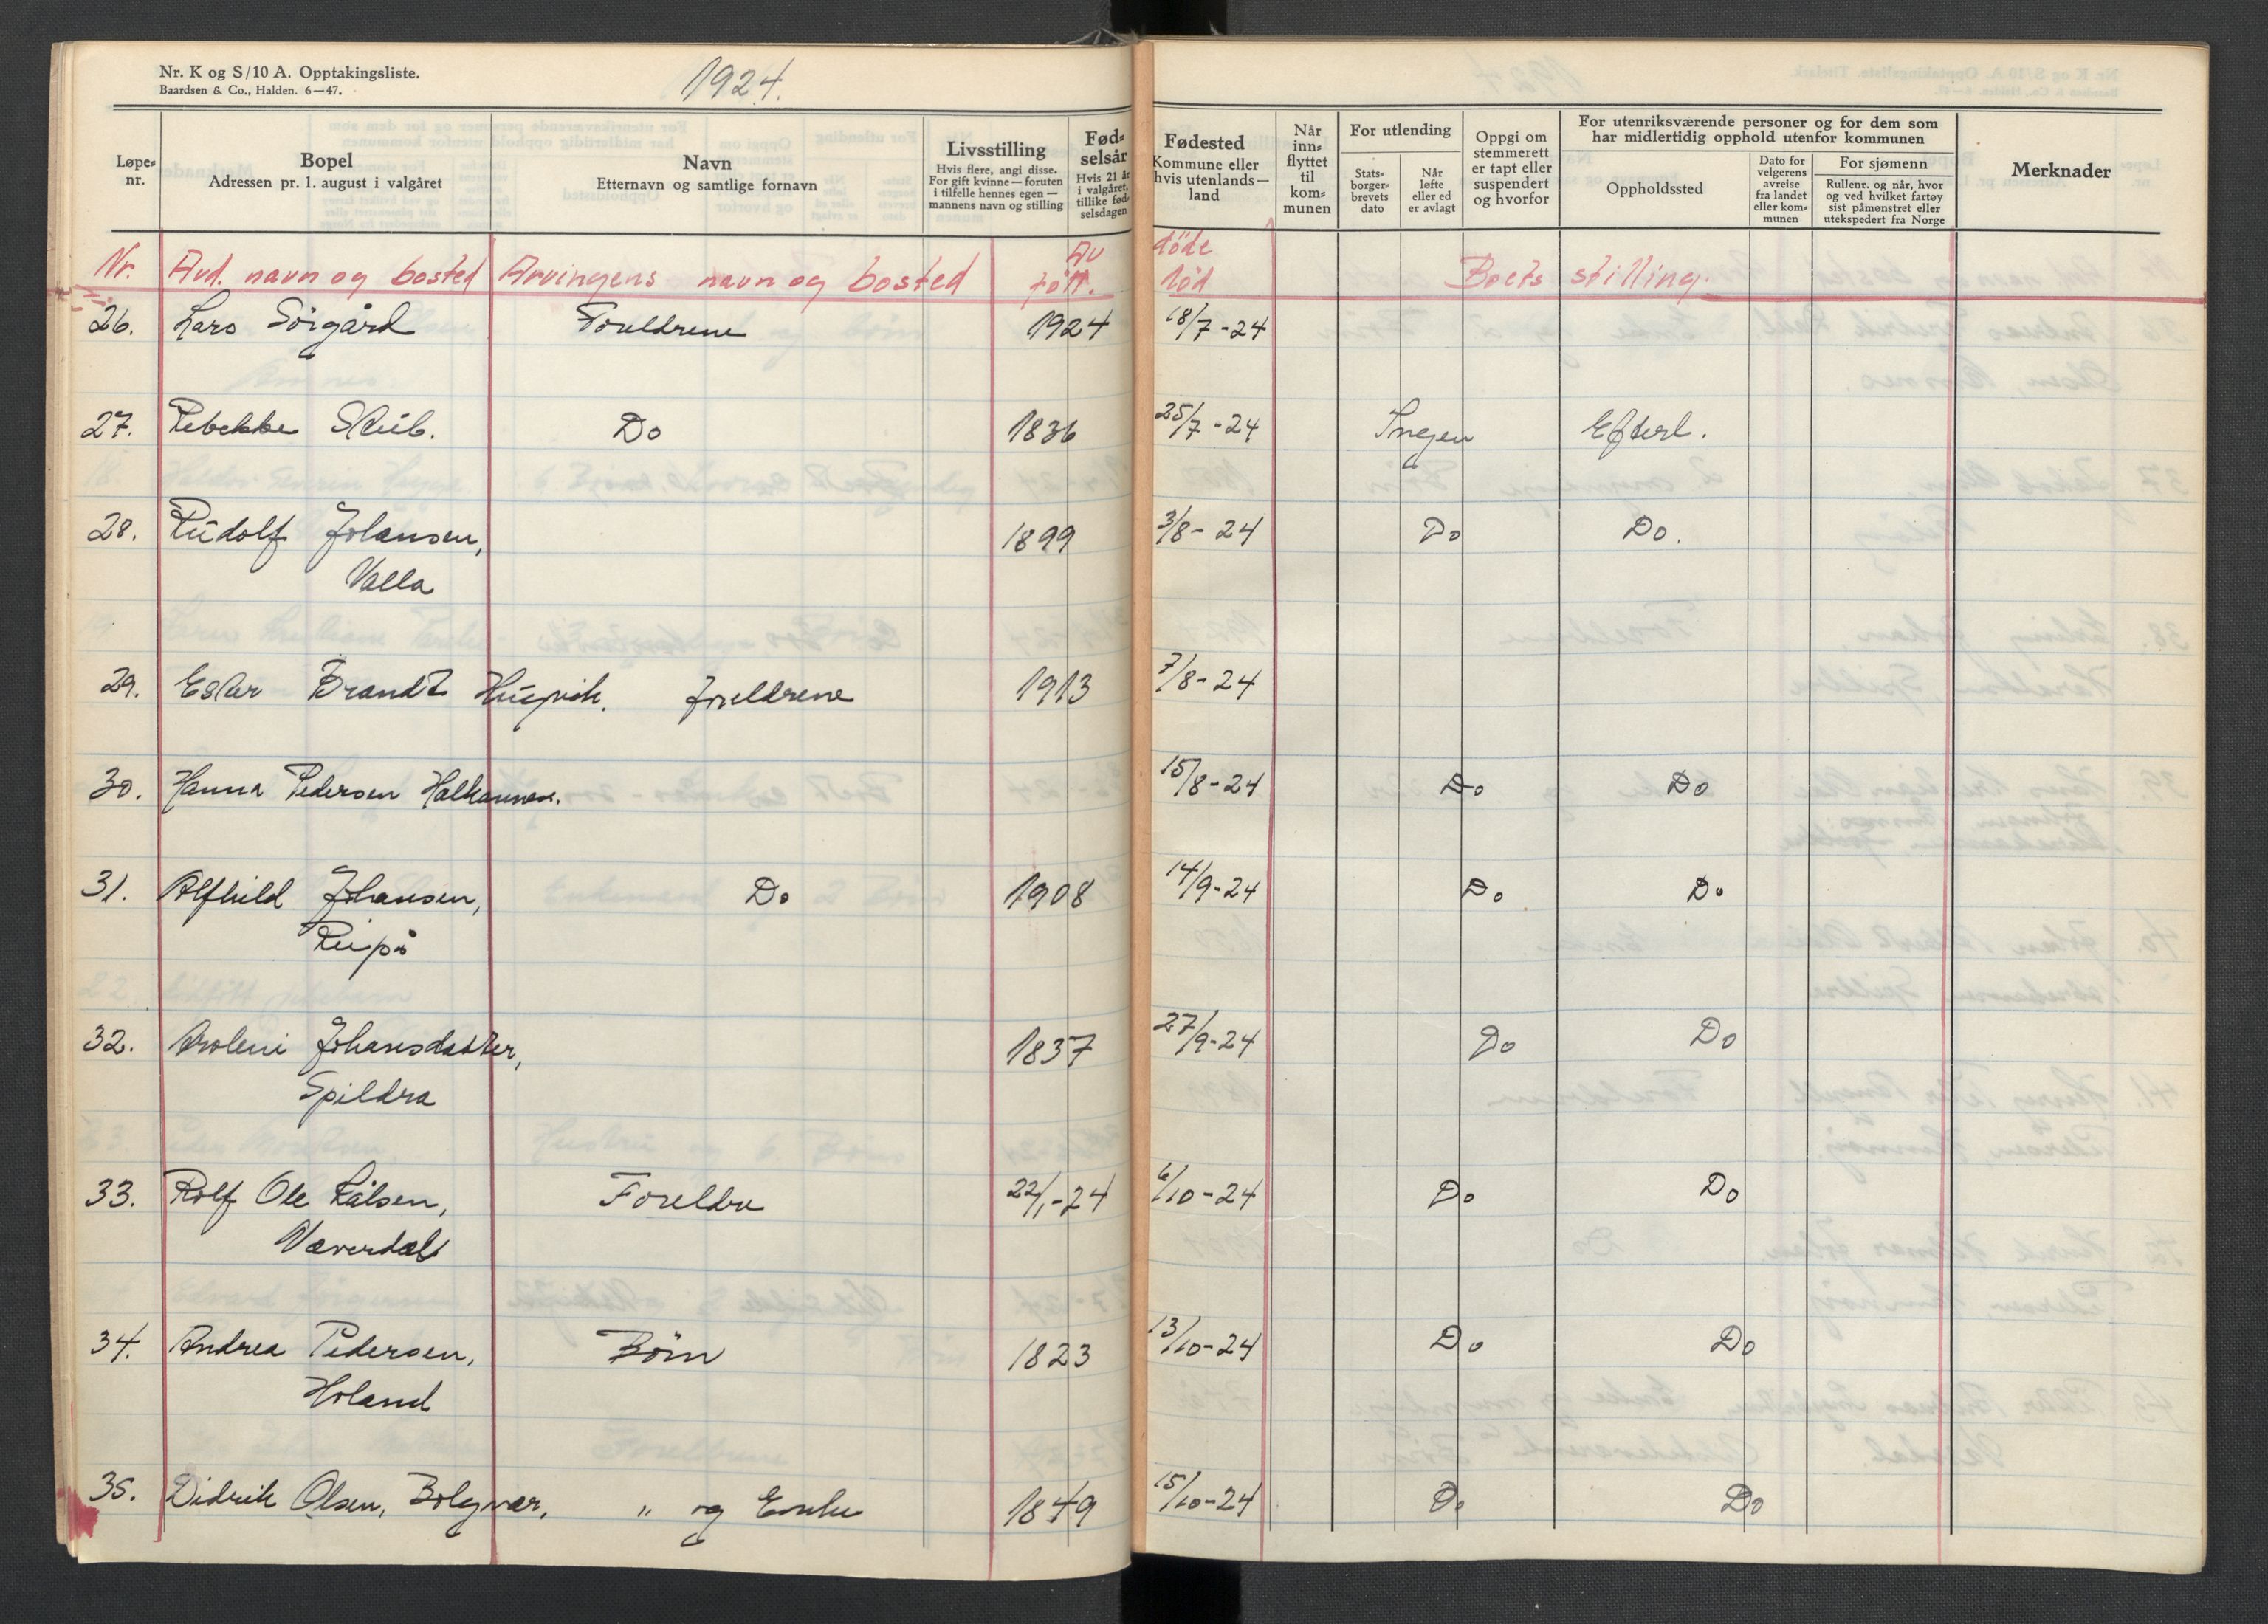 Nr. K og S/10 A. Opptakingsliste.
Baardsen & Co., Halden. 6—47.
1924.
Løpe-nr.
Bopel
Adressen pr. 1. august i valgåret
Navn
Etternavn og samtlige fornavn
Livsstilling
Hvis flere, angi disse.
For gift kvinne — foruten
i tilfelle hennes egen —
mannens navn og stilling
Fød-
selsår
Hvis 21 år
i valgåret,
tillike fød-
selsdagen
Fødested
Kommune eller
hvis utenlands—
land
Når
inn-
flyttet
til
kom-
munen
For utlending
Stats-
borger-
brevets
dato
Når
løfte
eller ed
er avlagt
Oppgi om
stemmerett
er tapt eller
suspendert
og hvorfor
For utenriksværende personer og for dem som
har midlertidig opphold utenfor kommunen
Oppholdssted
Dato for
velgerens
avreise
fra landet
eller kom-
munen
For sjømenn
Rullenr. og når, hvor
og ved hvilket fartøy
sist påmønstret eller
utekspedert fra Norge
Merknader
Av döde
Nr. Avd. navn og bosted Arvingens navn og bosted född. död Boets stilling.
26. Lars Sörgård Foreldrene 1924 18/7-24
27. Rebekke Skub. Do 1836 25/7-24 Ingen Efterl.
28. Rudolf Johansen, 1899 3/8-24 Do Do.
Valla
29. Ester Brandt Husvik. foreldrene 1913 7/8-24
30. Hanna Pedersen 15/8-24 Do Do
31. Alfhild Johansen, Do 1908 14/9-24 Do Do
32. Johansdatter, 1837 27/9-24 Do Do
Spildra
33. Rolf Ole 22/1-24 6/10-24 Do Do
Foreldre
Værerdal
34. Andrea Pedersen, Börn 1823 13/10-24 Do Do
Holand
35. Didrik Olsen, Bolgvær, " og Enke 1849 15/10-24 Do Do